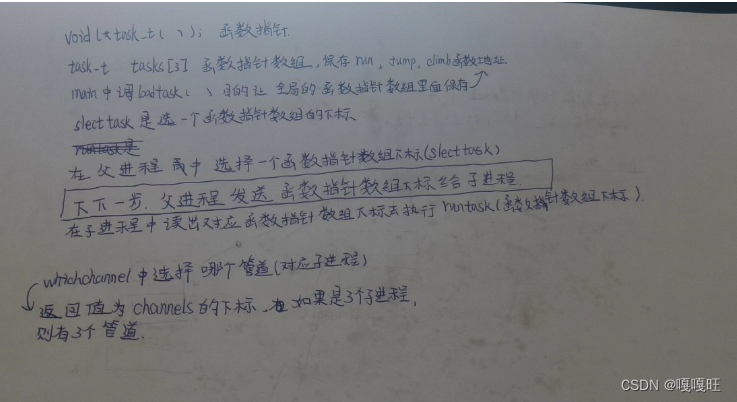 void (*task_t)(); 函数指针.
task_t tasks[3] 函数指针数组,保存 run, jump, climb函数地址.
main 中调 loadtask() 目的让 全局的 函数指针数组里面保存
slecttask 是选一个函数指针数组的下标
runtask是
在父进程 中 选择一个函数指针数组下标(slecttask)
下下一步.父进程 发送 函数指针数组下标给子进程.
在子进程中读出对应函数指针数组下标去执行 runtask(函数指针数组下标)
whichchannel 中选择 哪个管道(对应子进程)
返回值为 channels 的下标. 如果是3个子进程,
则有3个管道.
CSDN @嘎嘎旺